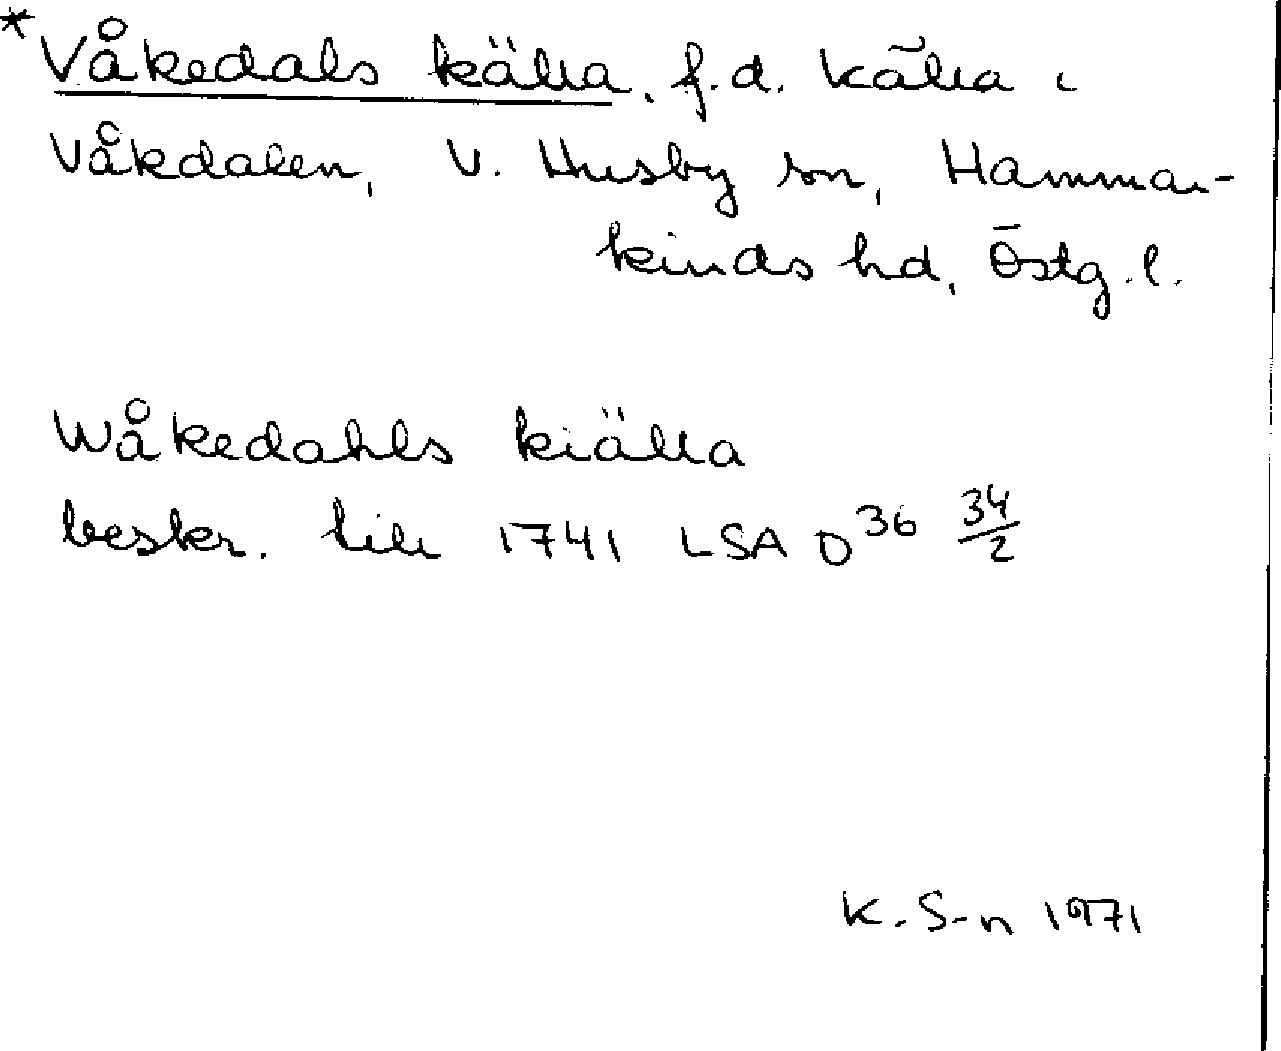 *Våkedals källa, f.d. källa i
Våkdalen, V. Husby sn, Hammar-
kinds hd, Östg.l.
Wåkedahls kiälla
beskr. till 1741 LSA D36 34/2
K. S-n 1971